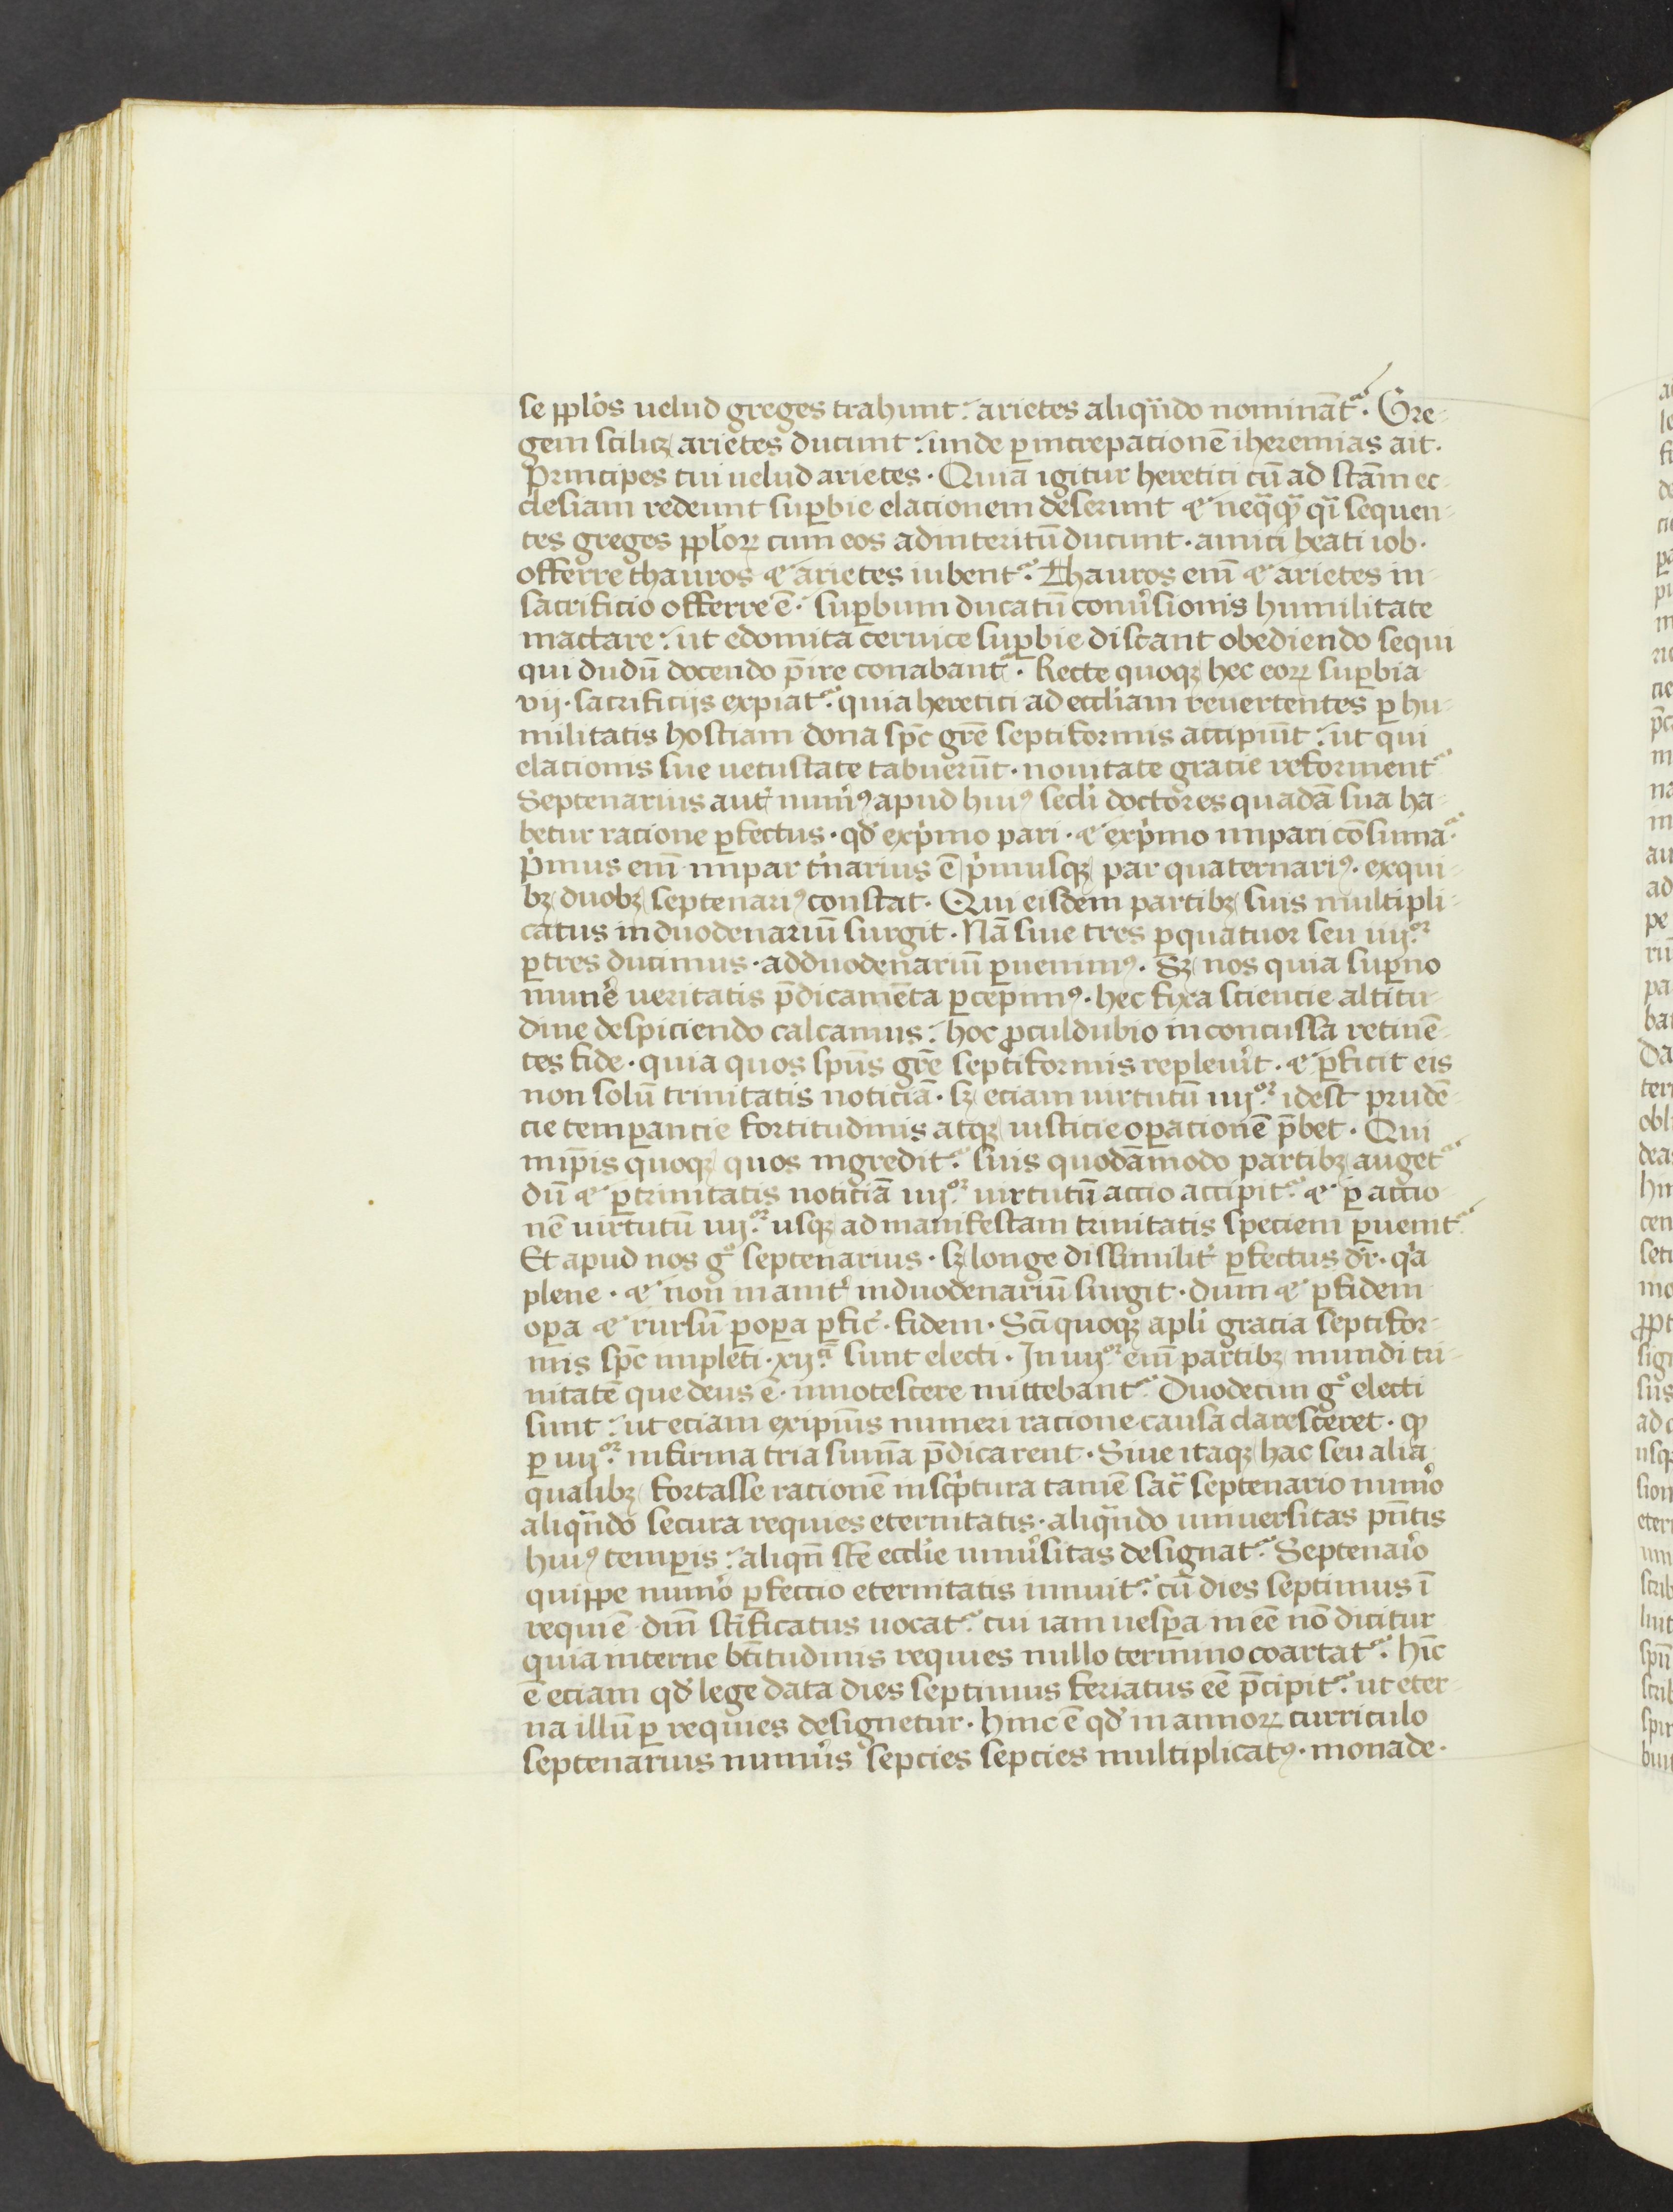 se pplōs uelud greges trahunt : arietes aliqn̄do nominant᷑. Gre-
gem scilicꝫ arietes ducunt : unde ꝑ increpationē iheremias ait.
Principes tui uelud arietes. Quia igitur heretici cū ad sc̄am ec-
clesiam redeunt suꝑbie elacionem deserunt & neqͣqͣ qͣ sequen-
tes greges pploꝝ cum eos ad interitū ducunt. amici beati iob.
offerre thauros & arietes iubent᷑. Thauros em̄ & arietes in
sacrificio offerre ē. suꝑbum ducatū conuˀsionis humilitate
mactare : ut edomita ceruice suꝑbie discant obediendo sequi
qui dudū docendo p̄ire conabant᷑. Recte quoqꝫ hec eoꝝ suꝑbia
vij. sacrificijs expiat᷑. quia heretici ad eccl̄iam reuertentes ꝑ hu-
militatis hostiam dona sp̄c gr̄e septiformis accipiūt : ut qui
elacionis sue uetustate tabuerūt. nouitate gracie reforment᷑
Septenarius autˀ numˀꝰ apud huiꝰ secl̄i doctores quadā sua ha-
betur racione ꝑfectus. qd̄ ex pͥmo pari. & ex pͥmo impari cōsumat᷑.
pͥmus em̄ impar tˀnarius ē pͥmusqꝫ par quaternariꝰ. ex qui-
bꝫ duobꝫ septenariꝰ constat. Qui eisdem partibꝫ suis multipli-
catus in duodenariū surgit. Nā siue tres ꝑ quatuor seu iiijᵒʳ
ꝑ tres ducimus. ad duodenariū ꝑuenimꝰ. Sꝫ nos quia suꝑno
munˀe ueritatis p̄dicamēta ꝑcepimꝰ. hec fixa sciencie altitu-
dine despiciendo calcamus : hoc ꝓculdubio inconcussa retinē-
tes fide. quia quos spūs gr̄e septiformis repleuˀit. & ꝑficit eis
non solū trinitatis noticiā. sꝫ eciam uirtutū iiijᵒʳ idest prudē-
cie temꝑancie fortitudinis atqꝫ iusticie oꝑationē p̄bet. Qui
in ip̄is quoqꝫ quos ingredit᷑. suis quodāmodo partibꝫ auget᷑
dū & ꝑ trinitatis noticiā iiijᵒʳ uirtutū accio accipit᷑. & ꝑ accio-
nē uirtutū iiijᵒʳ usqꝫ ad manifestam trinitatis speciem ꝑuenit᷑.
Et apud nos gͦ septenarius. sꝫ longe dissimilitˀ ꝑfectus dr̄. qͥa
plene. & non inanitˀ in duodenariū surgit. dum & ꝑ fidem
oꝑa & rursū ꝑ oꝑa ꝑficˀ. fidem. Sc̄i quoqꝫ apl̄i gracia septifor-
mis sp̄c impleti. xijᶜⁱ̄ sunt electi. In iiijᵒʳ em̄ partibꝫ mundi tri-
nitatē que deus ē. innotescere mittebant᷑. Duodecim gͦ electi
sunt : ut eciam ex ipiūs numeri racione causa claresceret. qͥ
ꝑ iiijᵒʳ infirma tria sum̄a p̄dicarent. Siue itaqꝫ hac seu alia
qualibꝫ fortasse racionē in scͥptura tamē sacͣ septenario numˀo
aliqn̄do secura requies eternitatis. aliqn̄do uniuersitas pn̄tis
huiꝰ temꝑis : aliqn̄ sc̄e eccl̄ie uniuˀsitas designat᷑. Septenario
quippe numˀo ꝑfeccio eternitatis innuit᷑. cū dies septimus ī
requiē dn̄i sc̄ificatus uocat᷑. cui iam uesꝑa inēe nō dicitur
quia interne bt̄itudinis requies nullo termino coartat᷑. hīc
ē eciam qd̄ lege data dies septimus feriatus ēe p̄cipit᷑. ut eter-
na illū ꝑ requies designetur. hinc ē qd̄ in annoꝝ curriculo
septenarius numˀus sepcies sepcies multiplicatꝰ. monade.